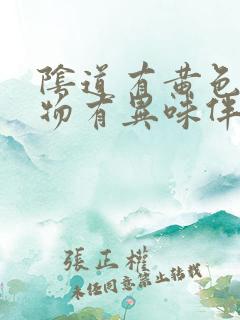 陰道有黄色
物有異味伴
張正權
未经同意禁止转载